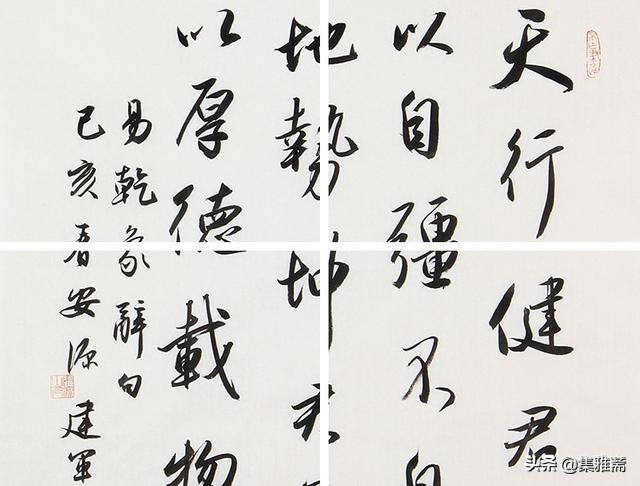 天行健君
以自彊不
地勢坤君
以厚德載物
易乾象辭句
己亥春安源建軍
头条 @集雅斋